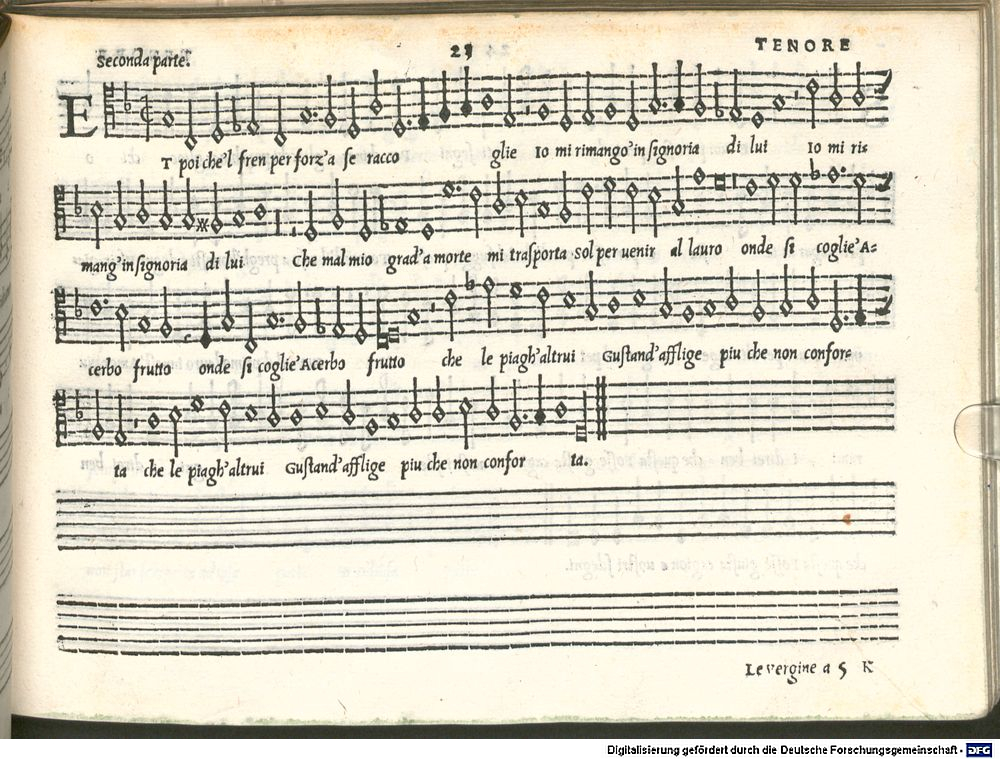 Seconda parte.
25
TENORE
ET poi che'l fren per forz'a se racco glie Io mi rimango'in signoria di lui Io mi ri=
mang'in signoria di lui Che mal mio grad'a morte mi trasporta Sol per uenir al lauro onde si coglie'A=
cerbo frutto onde si coglie'Acerbo frutto che le piagh'altrui Gustand'afflige piu che non confor=
ta che le piagh'altrui Gustand'afflige piu che non confor ta.
Le vergine a 5 K
Digitalisierung gefördert durch die Deutsche Forschungsgemeinschaft - DFG